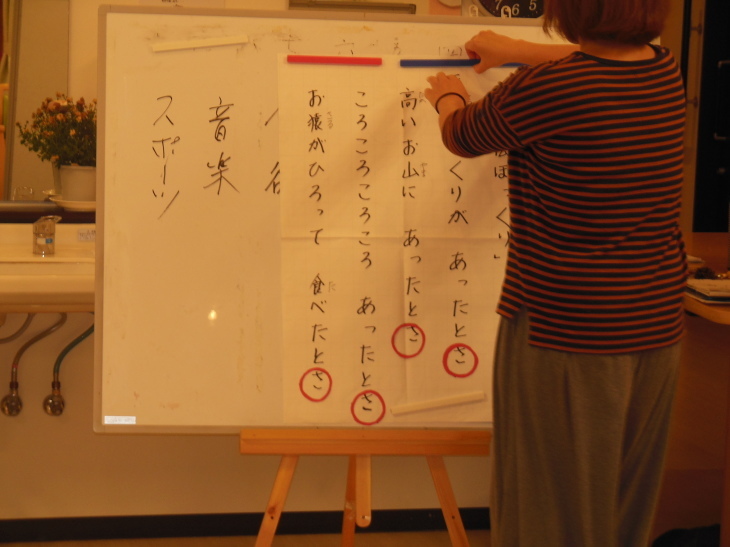 ぼっくり」
くりが あったとさ
高いお山に あったとさ
ころころころころ あったとさ
お猿がひろって 食べたとさ
音楽
スポーツ